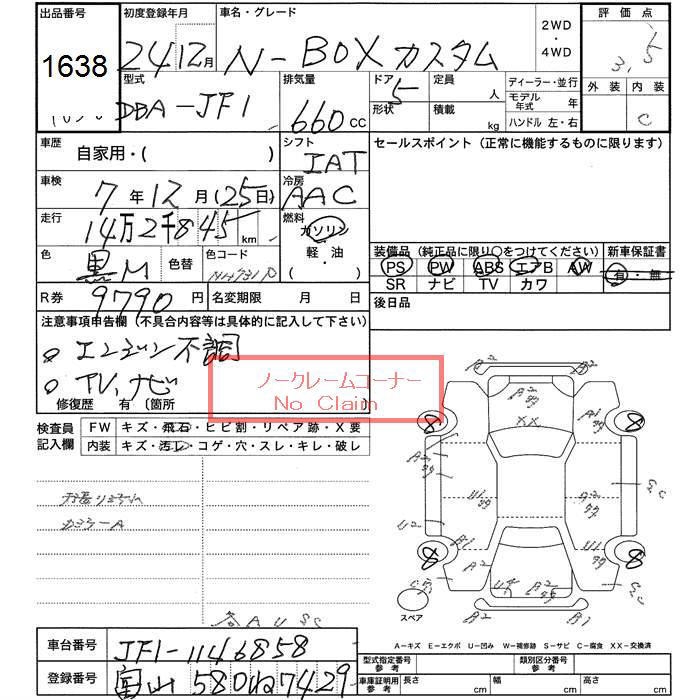 出品番号 初度登録年月 車名・グレード 2WD ・ 4WD 評価点
1638 24 12月 N-BOXカスタム 3.5
型式 排気量 ドア 5 定員 人 ディーラー・並行 外装 内装
DBA-JF1 660cc 形状 積載 kg モデル年式 年 C
ハンドル 左・右
車歴 自家用・( ) シフト IAT セールスポイント(正常に機能するものに限ります)
車検 7年12月(25日) 冷房 AAC
走行 14万2千845km 燃料 ガソリン
軽・油 ( )
色 黒M 色替 色コード NH731P
装備品(純正品に限り〇をつけてください) 新車保証書
PS PW ABS エアB AW 有・無
SR ナビ TV カワ
R券 9790円 名変期限 月 日 後日品
注意事項申告欄(不具合内容等は具体的に記入して下さい)
。エンジン不調
。TV、ナビ
修復歴 有〔箇所
ノークレームコーナー
No Claim
検査員記入欄 FW キズ・飛石・ヒビ割・リペア跡・X要
内装 キズ・汚レ・コゲ・穴・スレ・キレ・破レ
カラーA
A2 XX A1 A2 U1 U2 B1 B2
8 8 8 8
スペア
A=キズ E=エクボ U=凹み W=補修跡 S=サビ C=腐食 XX=交換済
車台番号 JF1-1146858
登録番号 富山 580ね7429
型式指定番号 参考 類別区分番号 参考
車庫証明用 参考 長さ cm 幅 cm 高さ cm